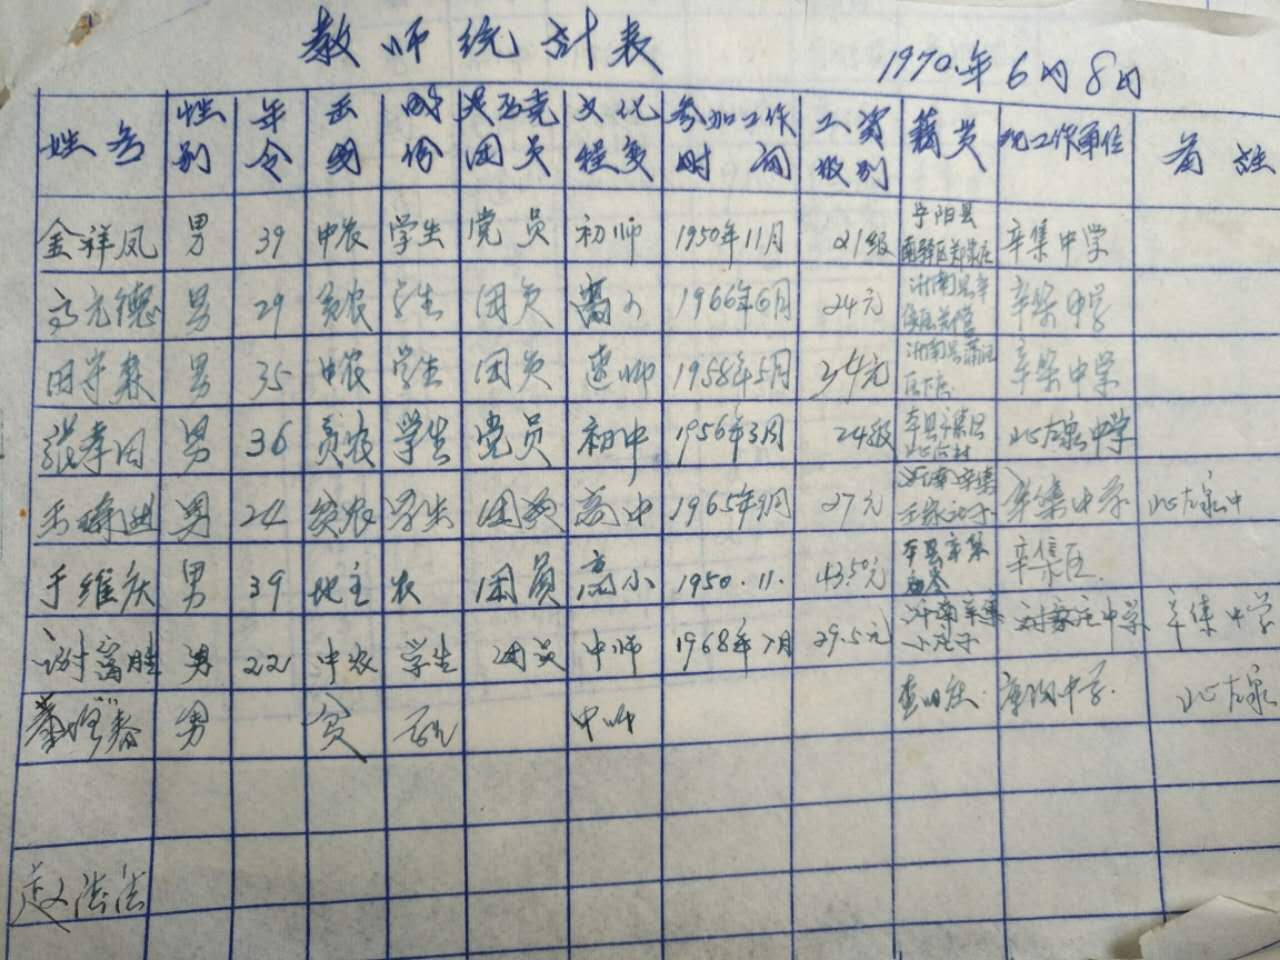 教师统计表
1970.年6月8日
姓名 性别 年令 出身 成份 是否党团员 文化程度 参加工作时间 工资级别 籍贯 现工作单位 备注
金祥凤 男 39 中农 学生 党员 初师 1950年11月 21级 宁阳县 辛集中学
高元德 男 29 贫农 学生 团员 1966年6月 24元 沂南县辛 辛集中学
田守森 男 35 中农 学生 团员 速师 1958年5月 34元 沂南县 辛集中学
张孝田 男 36 贫农 学生 党员 初中 1956年3月 24级 本县辛集区 北左泉中学
男 24 贫农 学生 团员 高中 1965年9月 27元 沂南辛集 辛集中学 北左泉中
于维庆 男 39 地主 农 团员 高小 1950.11. 43.50元 本县辛集 辛集区.
谢富胜 男 22 中农 学生 团员 中师 1968年7月 29.5元 沂南辛集 刘家庄中学 辛集中学
男 贫 中师 中学. 北左泉
赵法法